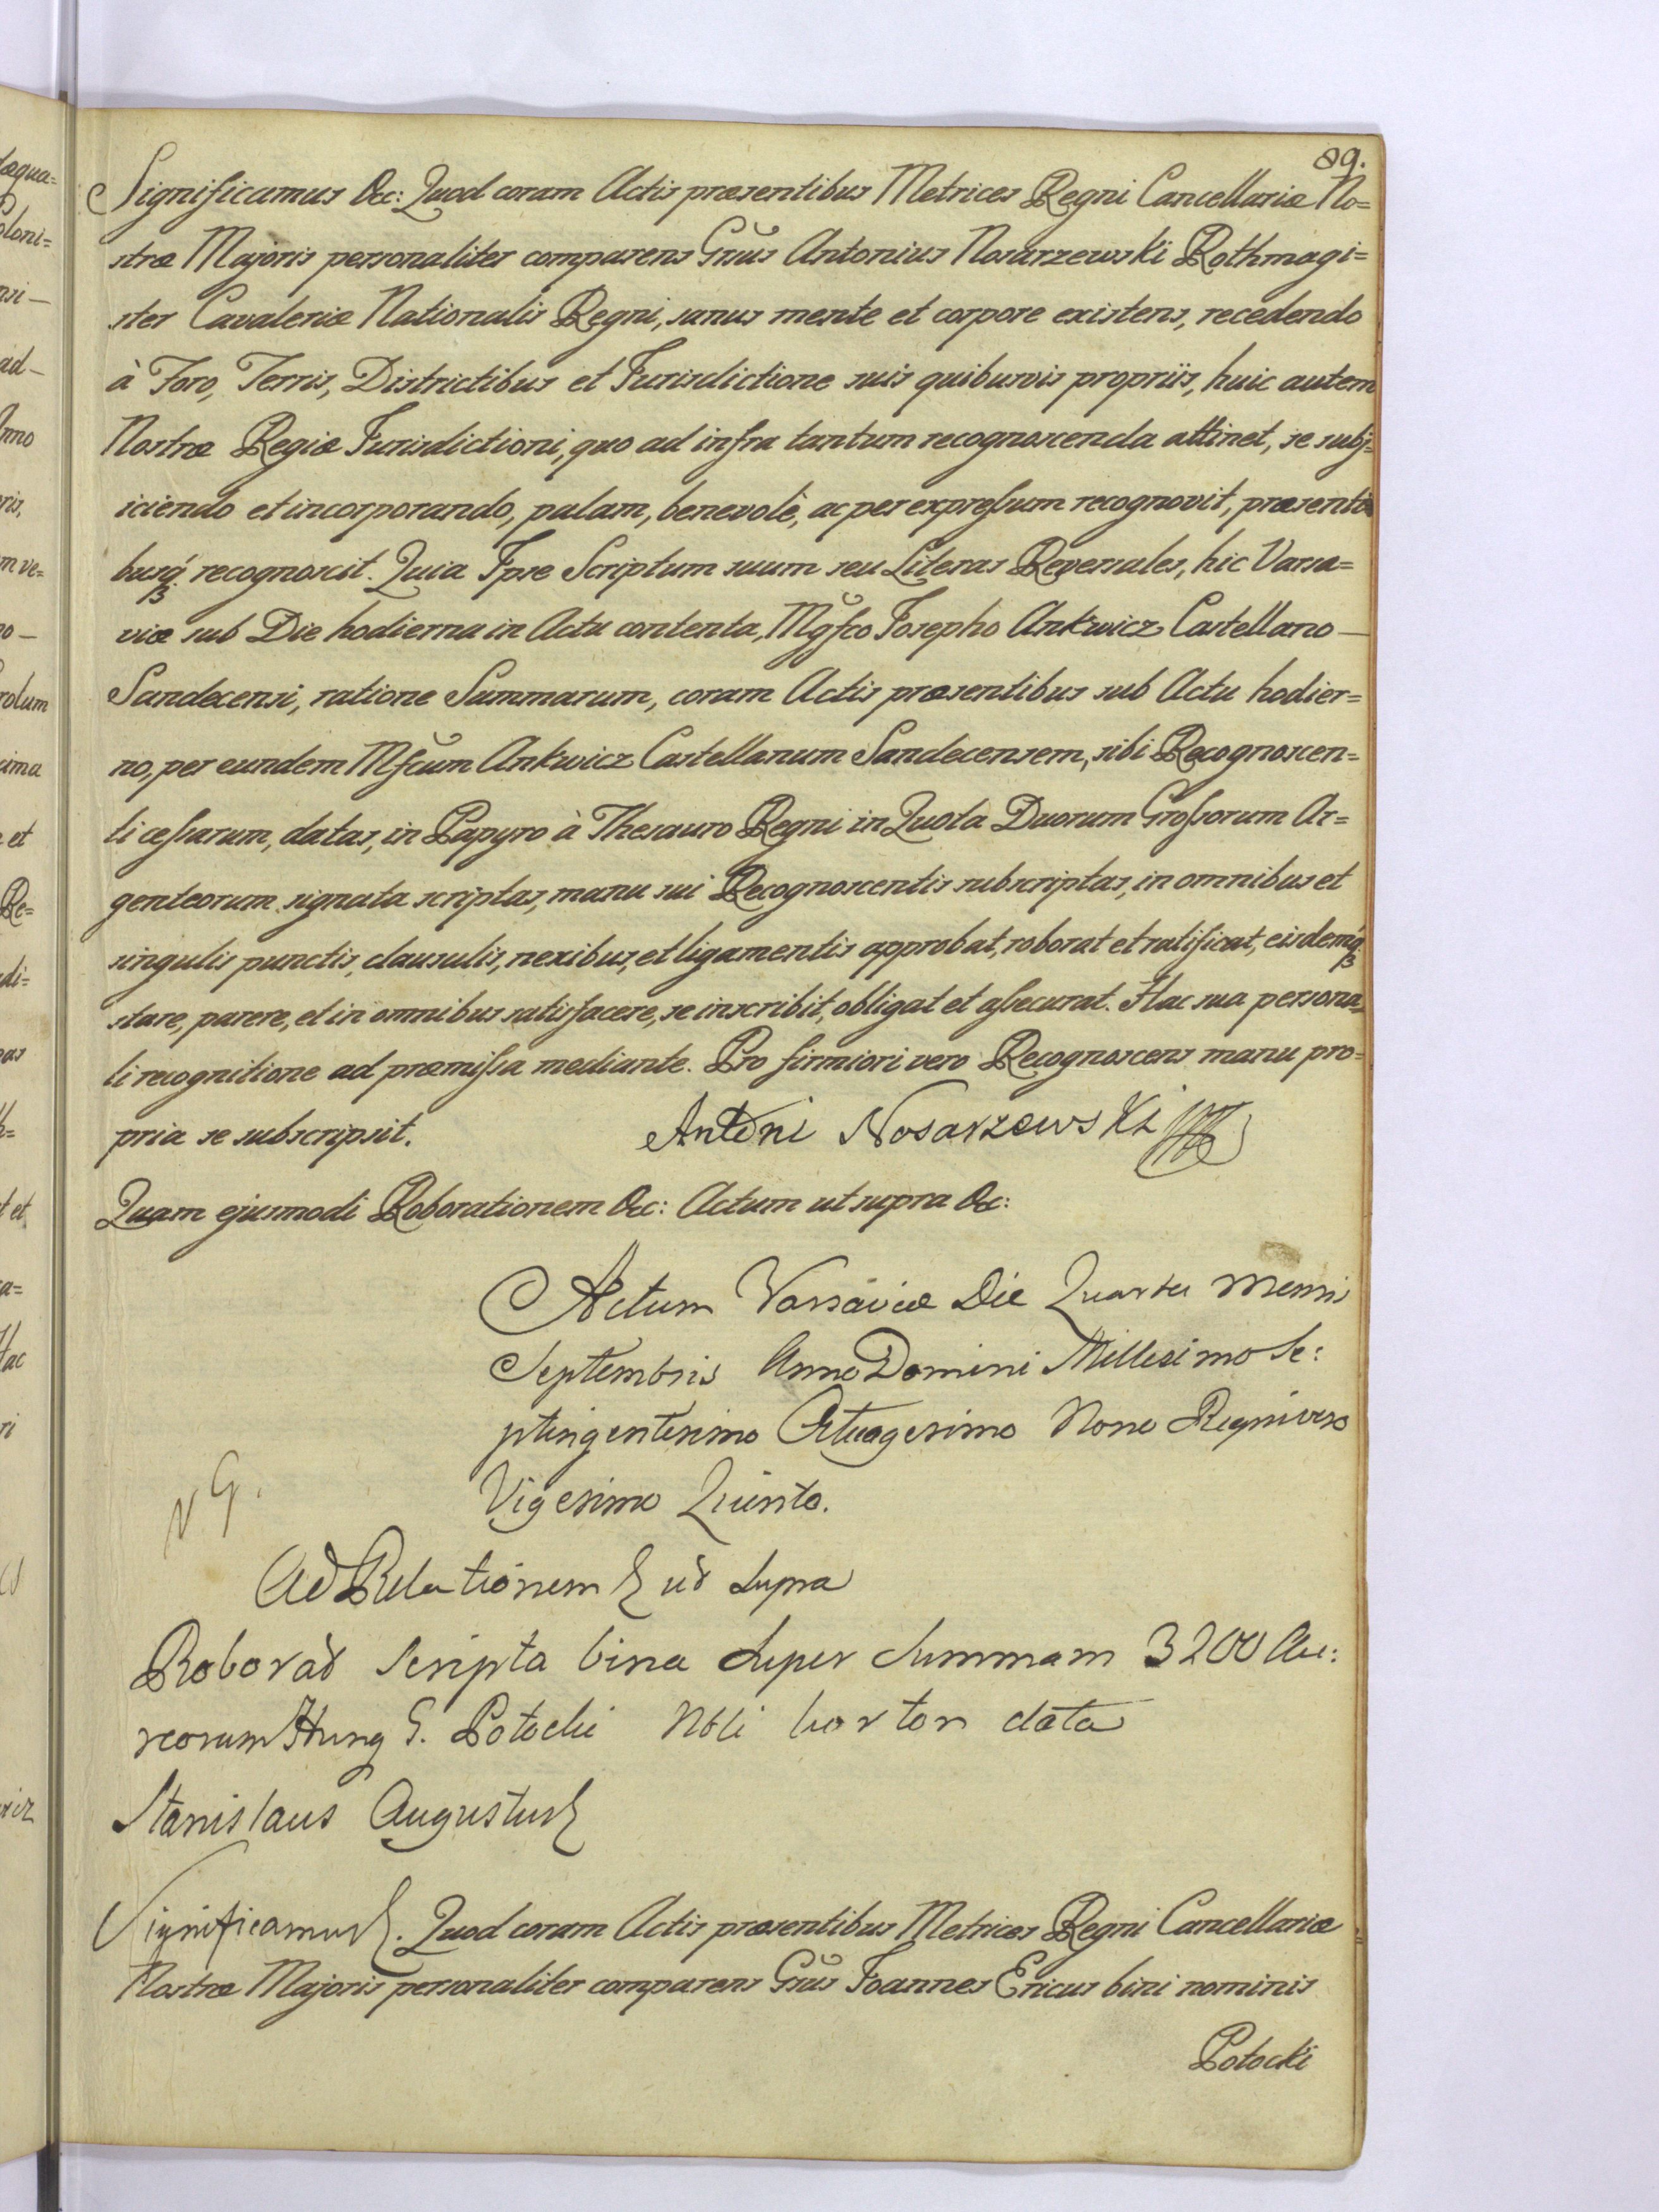 89.
Significamus &c: Quod coram Actis præsentibus Metrices Regni Cancellariæ No=
stræ Majoris personaliter comparens Grsus Antonius Nosarzewski Rothmagi=
ster Cavaleriæ Nationalis Regni, sanus mente et corpore existens, recedendo
à Foro, Terris, Districtibus et Jurisdictione suis quibusvis propriis, huic autem
Nostræ Regiæ Jurisdictioni, quo ad infra tantum recognoscenda attinet, se subj=
iciendo et incorporando, palam, benevolè, ac per expressum recognovit, præsenti
busq. recognoscit. Quia Ipse Scriptum suum seu Literas Reversales, hic Varsa=
viæ sub Die hodierna in Actu contenta, Mgfco Josepho Ankwicz Castellano —
Sandecensi, ratione Summarum, coram Actis præsentibus sub Actu hodier=
no, per eundem Mfcum Ankwicz Castellanum Sandecensem, sibi Recognoscen=
ti cessarum, datas, in Papyro à Thesauro Regni in Quota Duorum Grossorum Ar=
genteorum signata scriptas, manu sui Recognoscentis subscriptas, in omnibus et
singulis punctis, clausulis, nexibus, et ligamentis approbat, roborat et ratificat, eisdemq.
stare, parere, et in omnibus satisfacere, se inscribit, obligat et assecurat. Hac sua persona=
li recognitione ad præmissa mediante. Pro firmiori vero Recognoscens manu pro=
pria se subscripsit.
Antoni Nosarzewski
Quam ejusmodi Roborationem &c: Actum ut supra &c:
Actum Varsaviæ Die Quarta Mensis
Septembris Anno Domini Millesimo Se:
ptingentesimo Octuagesimo Nono Regni vero
Vigesimo Quinto.
NG.
Ad Relationem ut supra
Roborat Scripta bina super summam 3200 Au:
reorum Hung G. Potocki Nbli data
Stanislaus Augustus
Significamus. Quod coram Actis præsentibus Metrices Regni Cancellariæ
Nostræ Majoris personaliter comparens Grsus Joannes Ericus bini nominis
Potocki